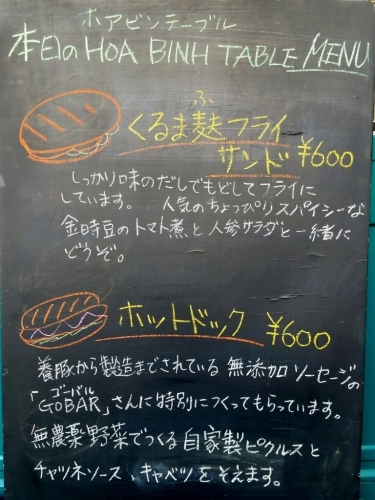 ホアビンテーブル
本日の HOA BINH TABLE MENU
ふ
くるま麩フライ
サンド ¥600
しっかり味のだしでもどしてフライに
しています。 人気のちょっぴりスパイシーな
金時豆のトマト煮と人参サラダと一緒に
どうぞ。
ホットドック ¥600
養豚から製造までされている 無添加ソーセージの
ゴーバル
「GOBAR」さんに特別につくってもらっています。
無農薬野菜でつくる自家製ピクルスと
チャツネソース、キャベツをそえます。